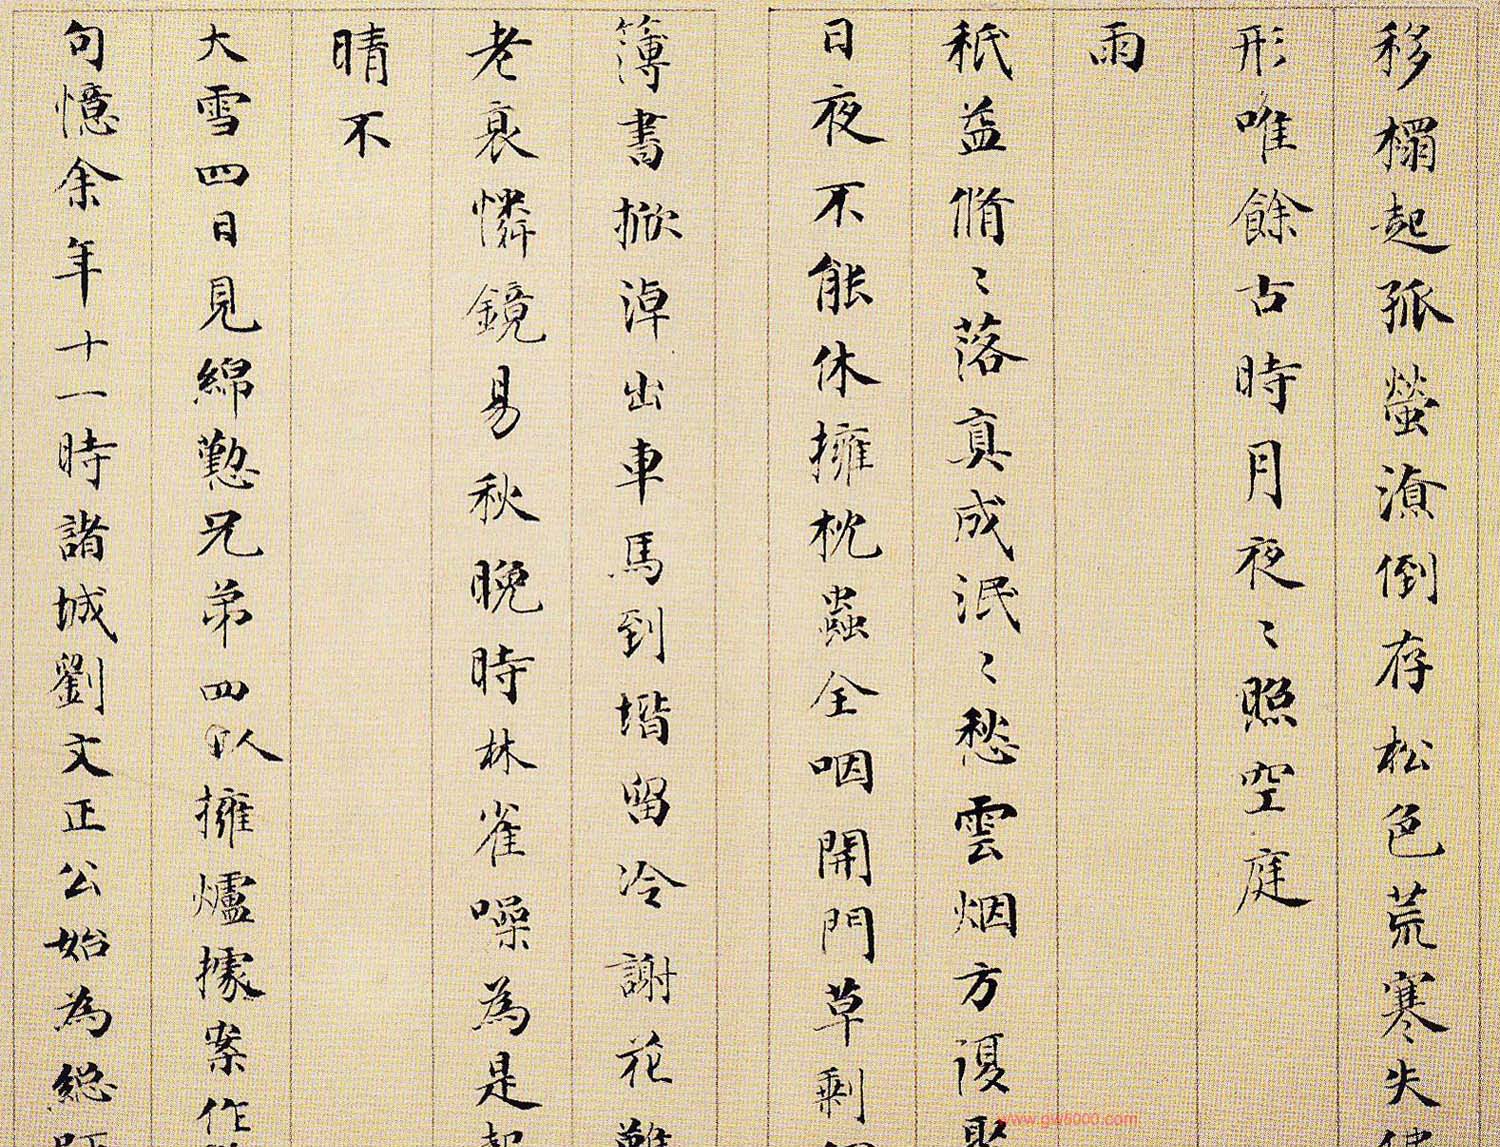 移榻起孤螢滾倒存松色荒寒失
形唯餘古時月夜〻照空庭
雨
秖益翛〻落真成泯〻愁雲烟方
日夜不能休擁枕蟲全咽開門草剩
簿書掀淖出車馬到堦留冷謝花難
老衰憐鏡易秋晚時林雀噪為是
晴不
大雪四日見綿懃兄弟四以擁爐據案作
句憶余年十一時諸城劉文正公始為總
www.gw6000.com